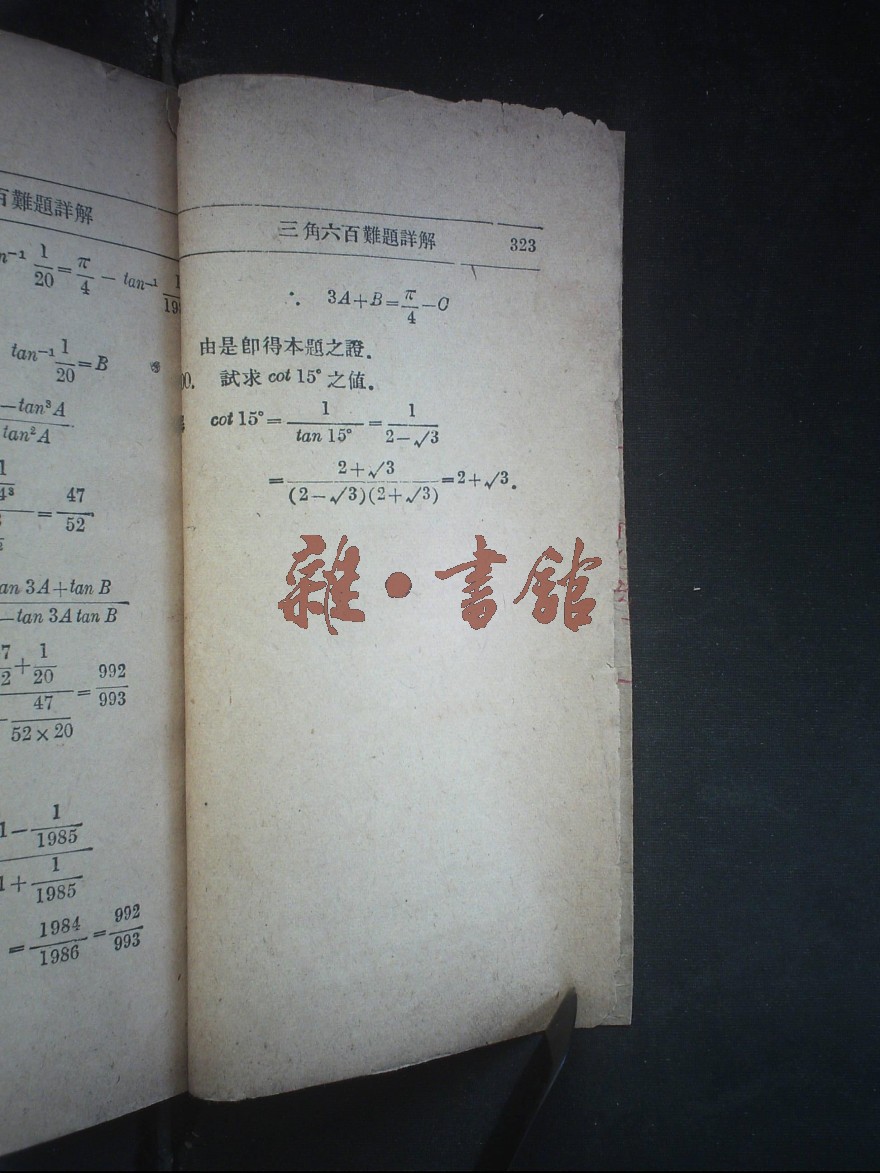 百難題詳解
tan⁻¹ 1/20 = π/4 − tan⁻¹
tan⁻¹ 1/20 = B
−tan³A
tan²A
= 47/52
tan 3A+tan B
−tan 3A tan B
+ 1/20
47
52×20
= 992/993
1− 1/1985
1+ 1/1985
= 1984/1986 = 992/993
三角六百難題詳解 323
∴ 3A+B= π/4 −C
由是卽得本題之證.
00. 試求 cot 15° 之値.
cot 15°= 1/tan 15° = 1/(2−√3)
= (2+√3)/((2−√3)(2+√3)) =2+√3.
雜·書館